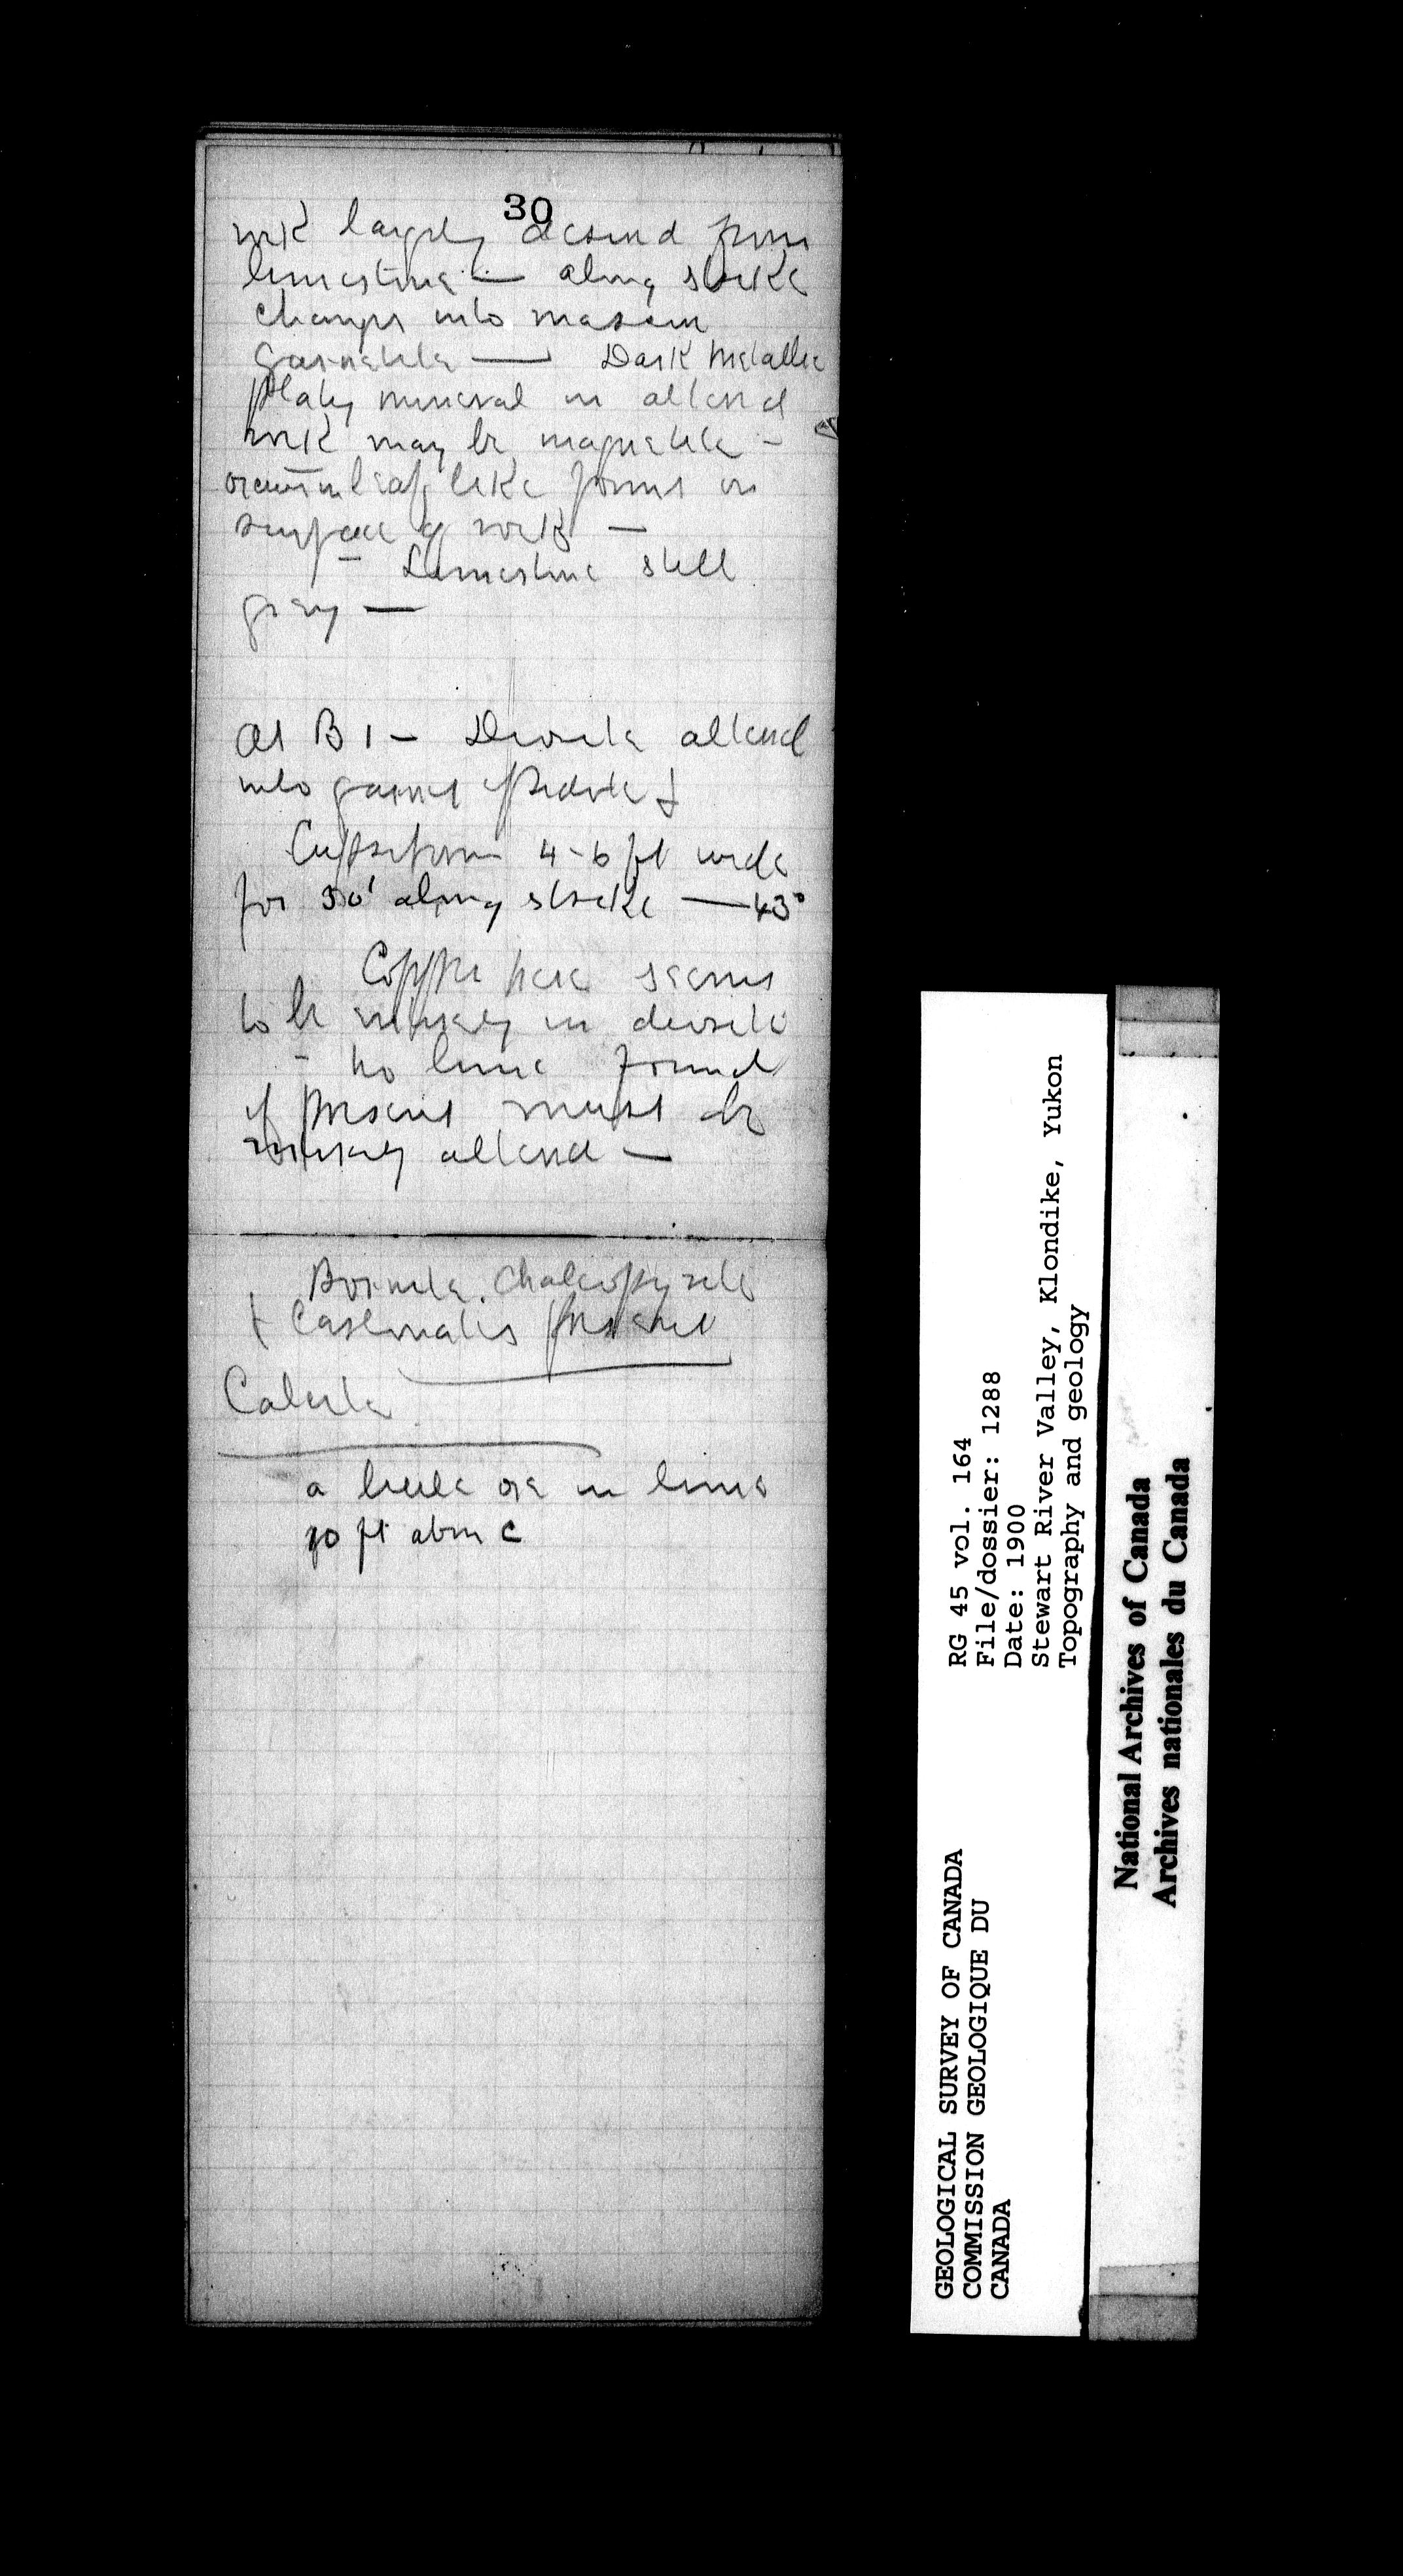 30
rock largely derived from
limestone — along strike
changes into massive
garnetite — Dark metallic
platy mineral in altered
rock may be magnetite -
occurs in leaf like forms on
surface of rock —
- Limestone still
grey —
At B 1 - Diorite altered
into garnet epidote &
Cupriferous 4-6 ft wide
for 50' along strike — 43°
Copper here seems
to be entirely in diorite
- no lime found
if present must be
entirely altered —
Bornite, Chalcopyrite
& Carbonates present
Calcite
a little ore in lime
70 ft above C
RG 45 vol. 164
File/dossier: 1288
Date: 1900
Stewart River Valley, Klondike, Yukon
Topography and geology
GEOLOGICAL SURVEY OF CANADA
COMMISSION GEOLOGIQUE DU
CANADA
National Archives of Canada
Archives nationales du Canada